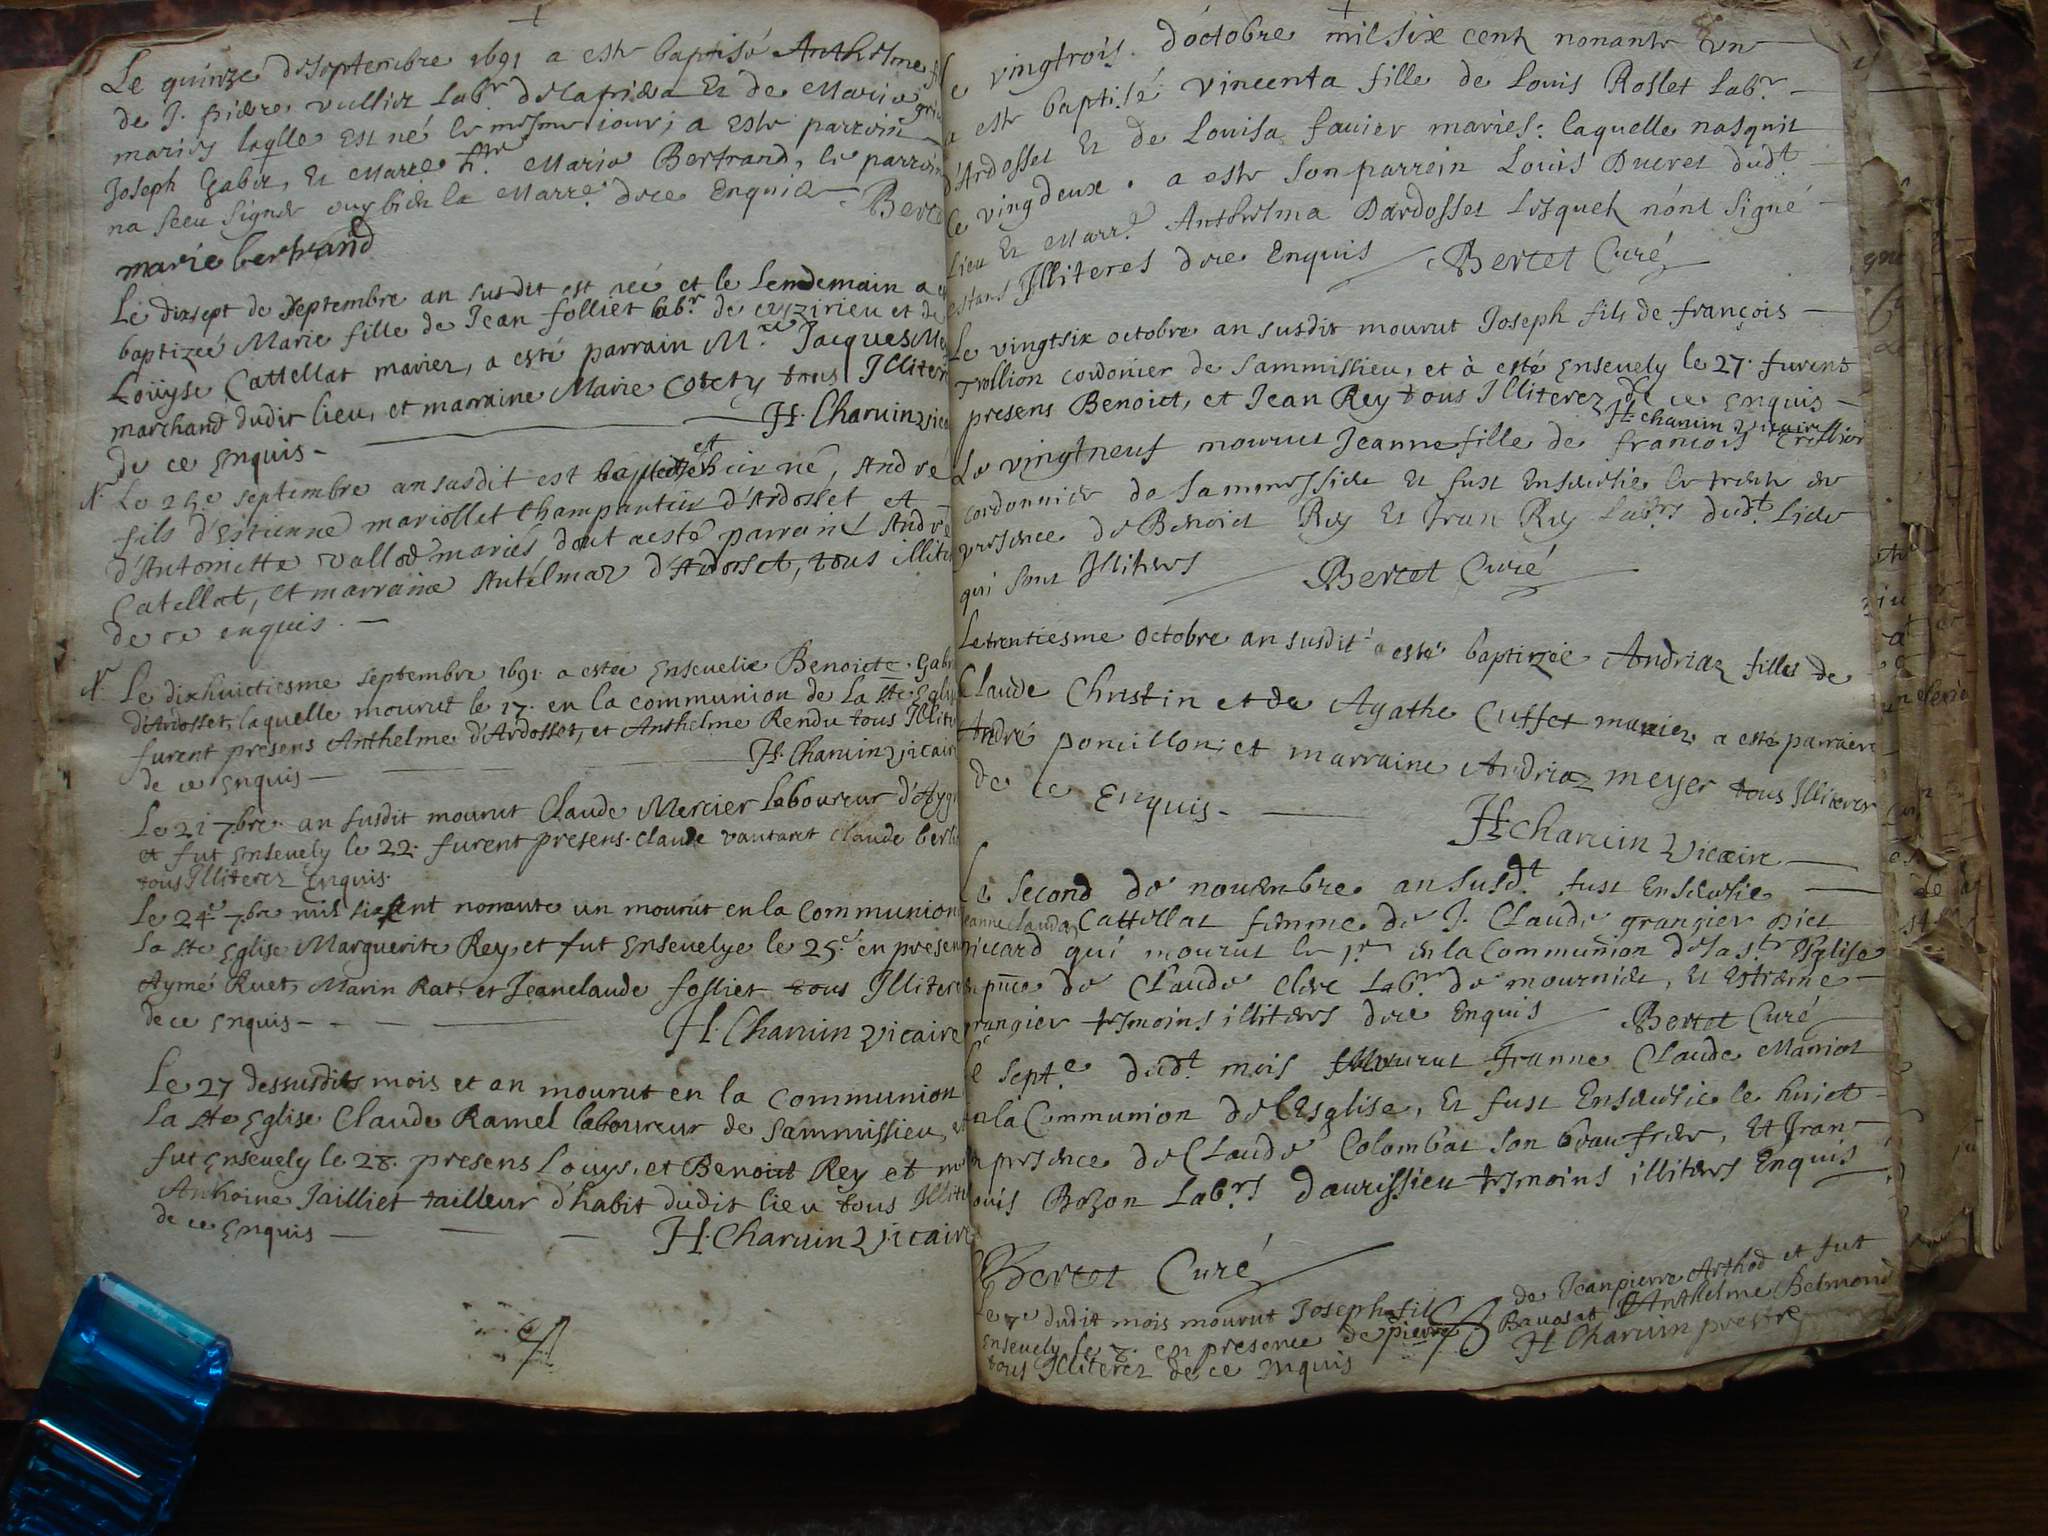 Le quinze de septembre 1691 a este baptisé Anthelme
de J. pierre vullier Lab.r de la et de Maria
mariés laqlle Est né le mesme iour, a este parrain
Joseph Gabet, Et Marre h.te Maria Bertrand, le parrein
na sceu signer ouy bien la Marre. de ce Enquis Berte
marie bertrand
Le dixsept de septembre an susdit est née et le Lendemain a
baptizeé Marie fille de Jean folliet lab.r de ceyzirieu et de
Loüyse Cattellat mariez, a esté parrain M.re Jacques
marchand dudit lieu, et marraine Marie tous Illiter
de ce Enquis - H. Charuin vica
N. Le 25.e septembre an susdit est baptisé et né, André
fils d'Estienne mariollet Champantier d'Ardosset et
d'Antoinette vallod mariés dont a esté parrain André
Catellat, et marraine Antelmaz d'Ardosset, tous illite
de ce enquis. -
N. Le dixhuictiesme septembre 1691. a estée Enseuelie Benoicte Gab
d'Ardosset, laquelle mourut le 17. en la communion de La Ste Eglis
furent presens Anthelme d'Ardosset, et Anthelme Rendu tous Illite
de ce Enquis - H. Charuin vicaire
Le 21 7bre. an susdit mourut Claude Mercier Laboureur d'Ayg
et fut Enseuely le 22. furent presens. Claude vautaret Claude ber
tous Illiterez Enquis.
Le 24e 7bre mil six cent nonante un mourut en la Communion
La Ste Eglise Marguerite Rey, et fut Enseuelye le 25.e en presen
Aymé Ruet, Marin Rat, et Jeanclaude folliet tous Illitere
de ce Enquis - H. Charuin Vicaire
Le 27 dessusdits mois et an mourut en la Communion
La Ste Eglise Claude Ramel laboureur de Sammissieu, et
fut Enseuely le 28. presens Louys, et Benoict Rey et
Anthoine Jailliet tailleur d'habit dudit lieu tous Illite
de ce Enquis - H. Charuin Vicaire
Le vingtrois. d'octobre mil six cent nonante un
a este baptisé vincenta fille de Louis Rosset Lab.r
d'Ardosset Et de Louisa fauier mariés: laquelle nasquit
le vingdeux. a este son parrein Louis Ducret dud.t
Lieu Et Marr.e Anthelma Dardosset lesquels n'ont signé
estans Illiteres de ce Enquis Bertet Curé
Le vingtsix octobre an susdit mourut Joseph fils de françois
Trollion cordonier de Sammissieu, et à esté Enseuely le 27. furent
presens Benoict, et Jean Rey tous Illiterez de ce Enquis -
H. Charuin Vicaire
Le vingtneuf mourut Jeanne fille de francois Trollion
cordonnier de Sammessieu Et fust Enseuelie le trente en
presence de Benoict Rey Et Jean Rey Lab.rs dud.t Lieu
qui sont Illiteres Bertet Curé
Le trentiesme octobre an susdit a esté baptizée Andriaz filles de
Claude Christin et de Agathe Cuffet mariez a esté parrain
André poncillon; et marraine Andriaz meyer tous Illiterez
de ce Enquis - H. Charuin Vicaire
Le Second de nouembre an susd.t fust Enseuelie
Jeanne clauda Cattellat femme de J. Claude grangier
piccard qui mourut le 1.er en la Communion de la s.te Esglise
en pnce de Claude Clerc Lab.r de mournieu, Et Estienne
grangier tesmoins illiteres de ce Enquis Bertet Curé
Le sept.e dud.t mois mourut Jeanne Claude Marriot
en la Communion de l'Esglise, Et fust Enseuelie le huict
en presence de Claude Colombat son beaufrere, Et Jean
Louis Bozon Lab.rs d'aurissieu tesmoins illiteres Enquis
Bertet Curé
Le 7e dudit mois mourut Joseph fil de Jeanpierre Arthod et fut
Enseuely le 8. en presence de pierre Bauosat d'Anthelme Belmond
tous Illiterez de ce Enquis H Charuin prestre